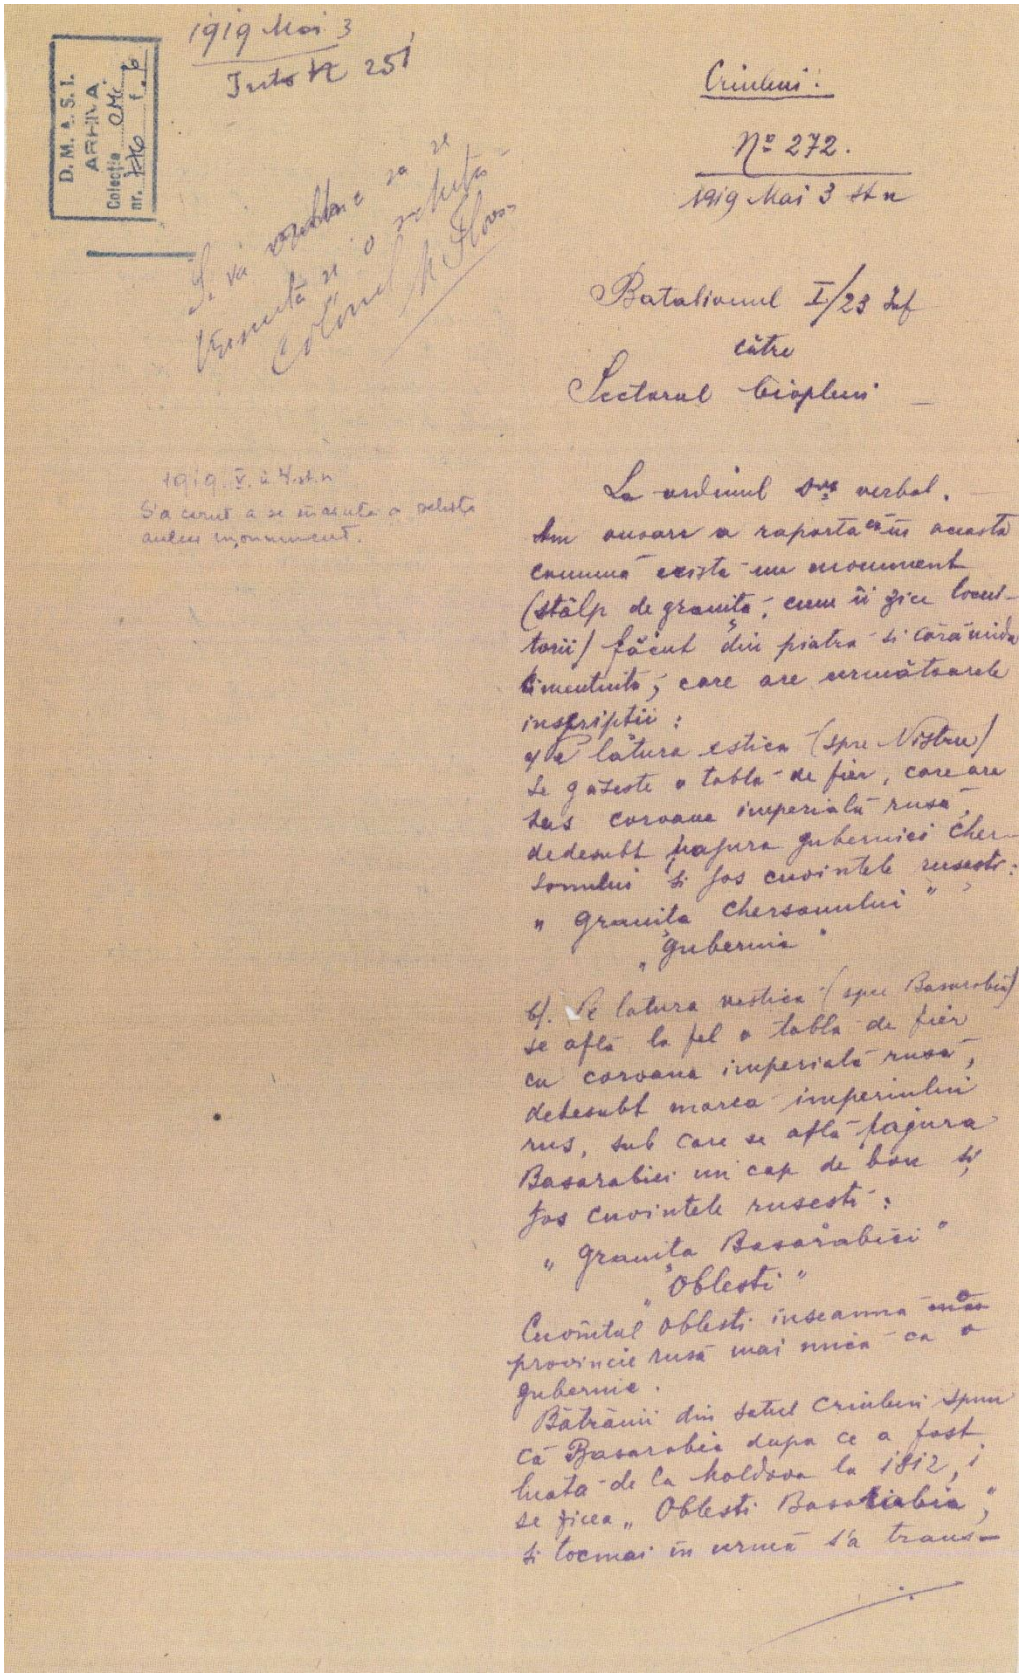 1919 Mai 3
251
D.M.A.S.I.
ARHIVA
Colecția
nr.
Criuleni:
No 272.
1919 Mai 3 st n
Se va
și o
Colonel
Batalionul I/23 Inf
către
Sectorul
1919. V. 4 st. n
S'a cerut a se înainta o schiță
acelui monument.
La ordinul Dvs verbal.
Am onoare a raporta că în aceasta
comună există un monument
(stâlp de graniță, cum îi zice locui-
torii) făcut din piatra si cărămida
cimentuită, care are următoarele
inscripții:
a) Pe lătura estica (spre Nistru)
se găseste o tabla de fier, care are
sus coroana imperială rusă,
dedesubt pajura guberniei Cher-
sonului și jos cuvintele rusesti:
„ granița Chersonului "
„ gubernia "
b). Pe latura vestica (spre Basarabia)
se află la fel o tabla de fier
cu coroana imperială rusă,
dedesubt marca imperiului
rus, sub care se află pajura
Basarabiei un cap de bou și
jos cuvintele rusesti:
„ granița Basarabiei "
„ Oblesti "
Cuvintul oblesti inseamna o
provincie rusă mai mică ca o
gubernie.
Bătrânii din satul Criuleni spun
că Basarabia dupa ce a fost
luata de la Moldova la 1812, i
se zicea „ Oblesti Basarabia",
si tocmai în urmă s'a trans-